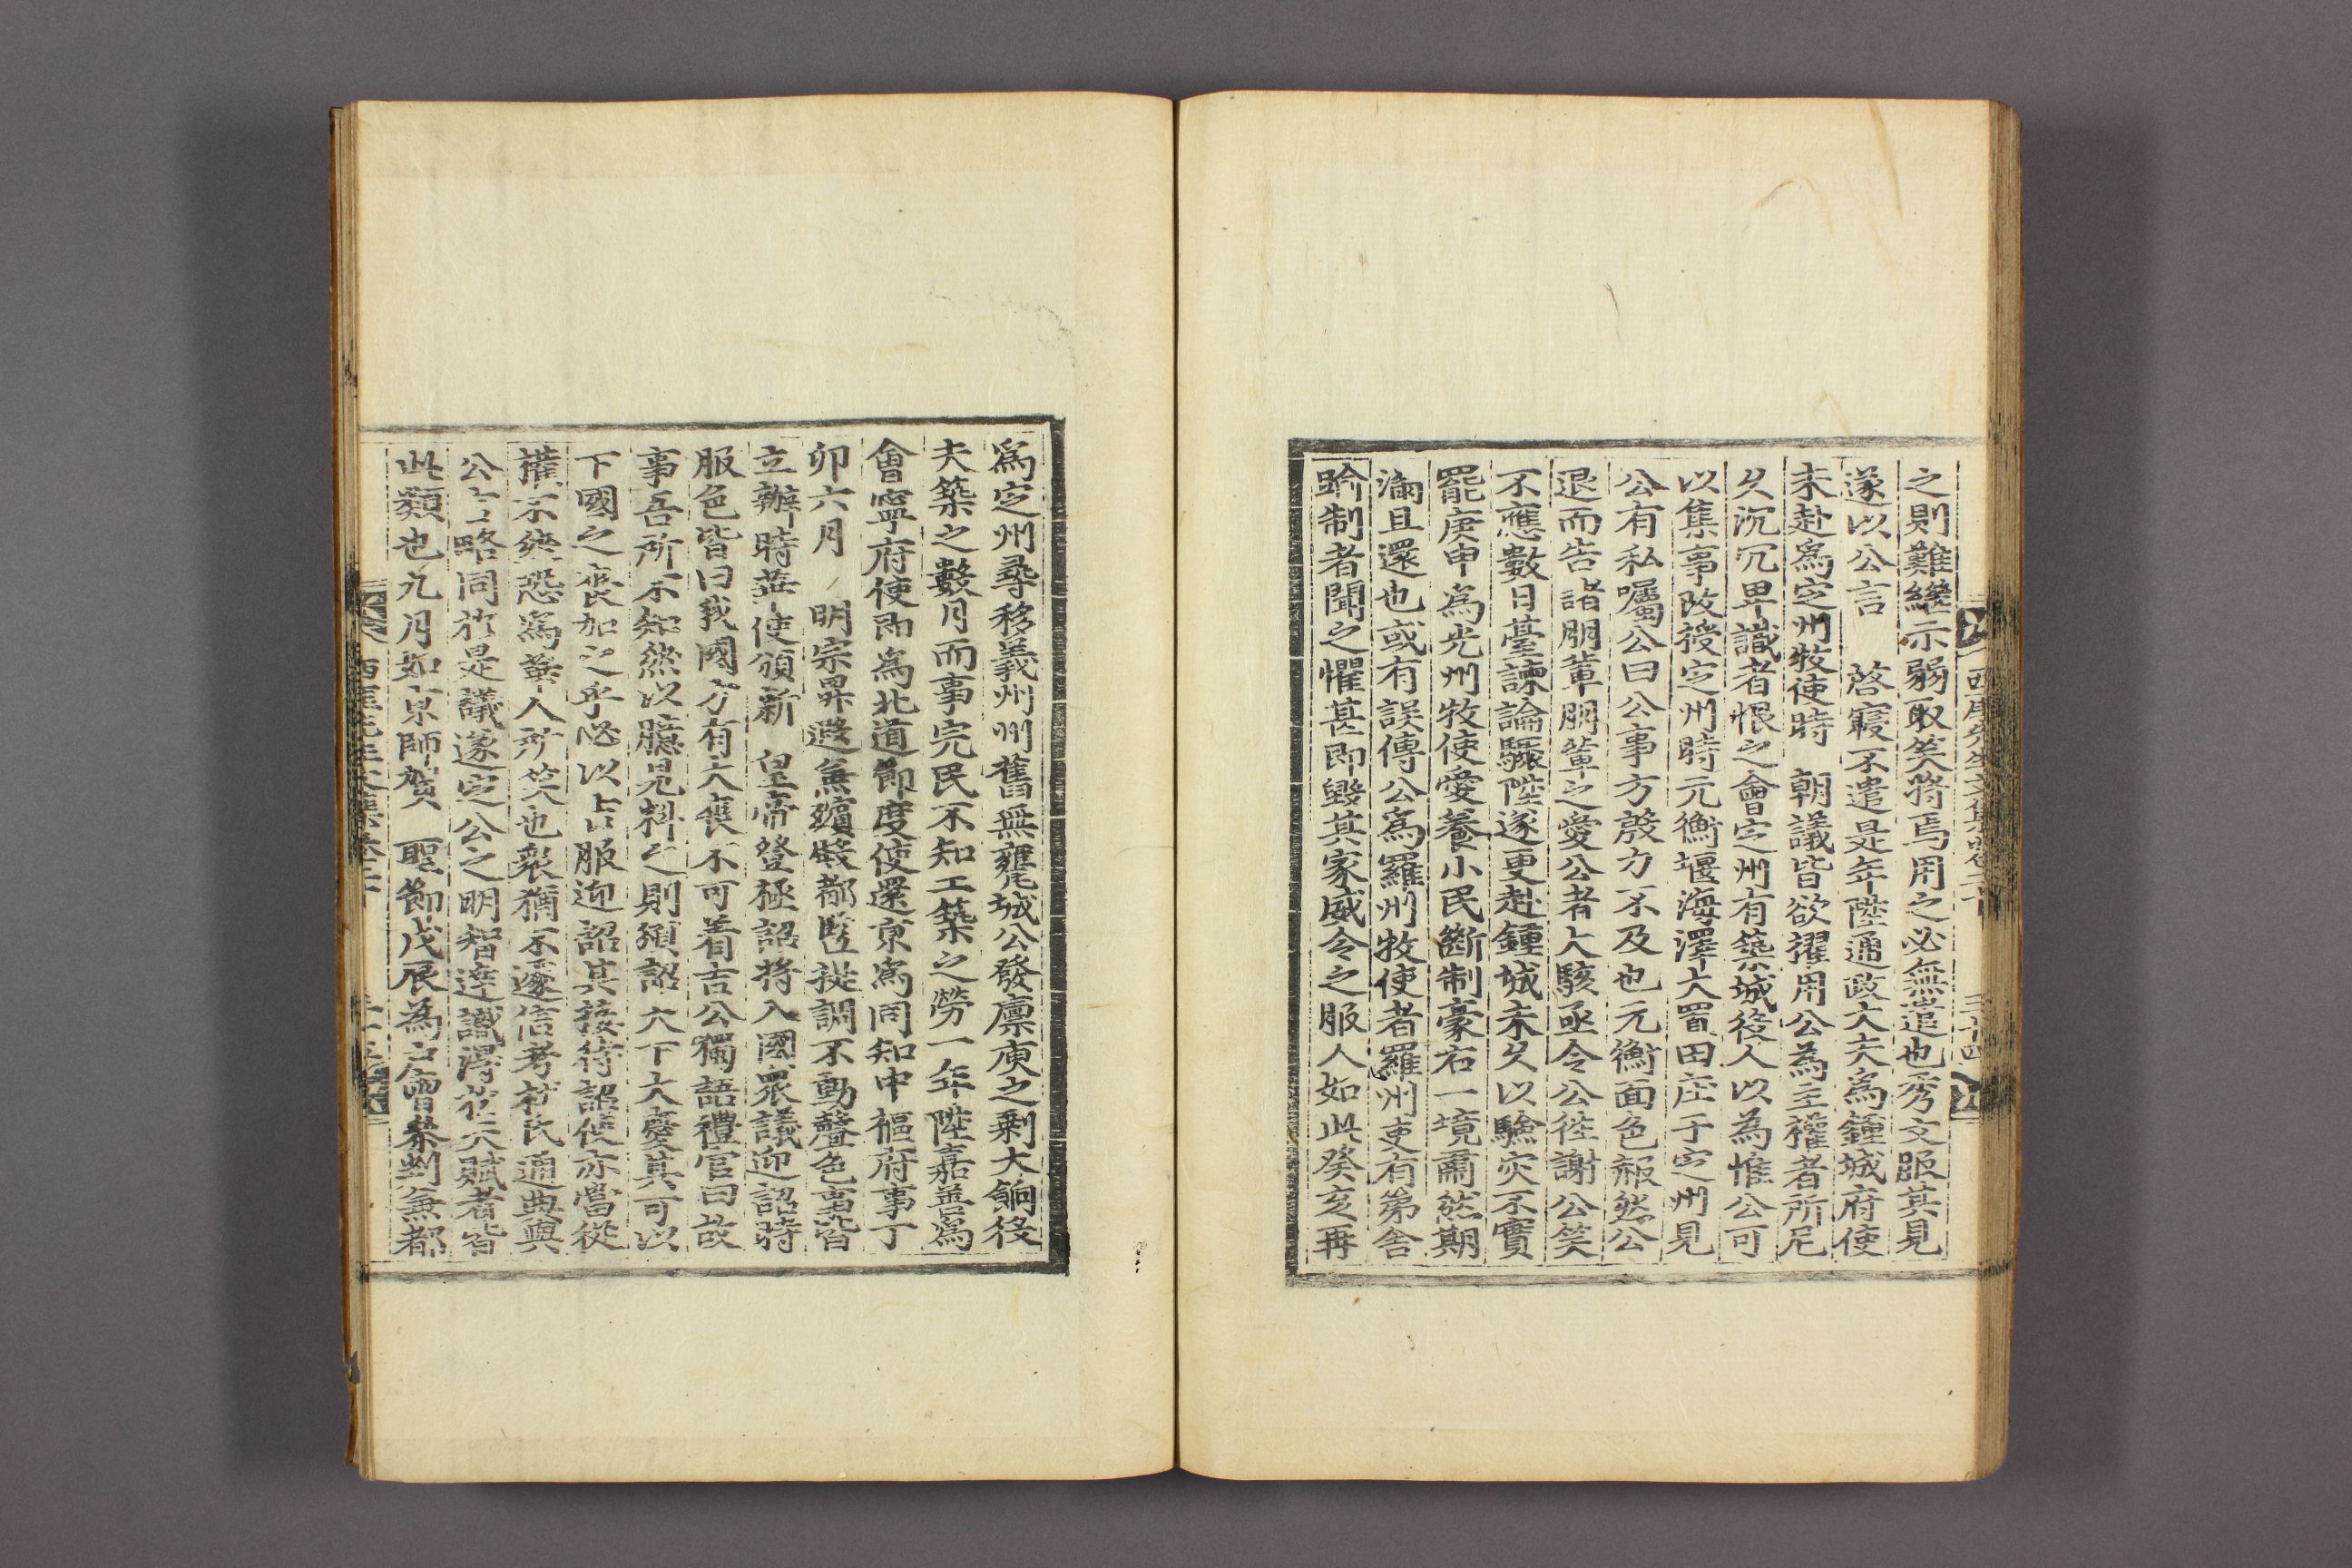 之則難繼示弱取笑將焉用之必無遣也秀文服其見
遂以公言 啓寢不遣是年陞通政大夫爲鍾城府使
未赴爲定州牧使時 朝議皆欲擢用公為主權者所尼
久沉冗畀識者恨之會定州有築城役人以為惟公可
以集事改授定州時元衡堰海澤大置田庄于定州見
公有私囑公曰公事方殷力不及也元衡面色赧然公
退而告諸朋輩朋輩之愛公者大駭亟令公徃謝公笑
不應數日臺諫論驟陞遂更赴鍾城未久以驗灾不實
罷庚申爲光州牧使愛養小民斷制豪右一境肅然期
滿且還也或有誤傳公爲羅州牧使者羅州吏有第舍
踰制者聞之懼甚即毀其家威令之服人如此癸亥再
爲定州尋移義州州舊無甕城公發廪庾之剩大餉役
夫築之數月而事完民不知工築之勞一年陞嘉善爲
會寧府使即爲北道節度使還京爲同知中樞府事丁
卯六月 明宗昇遐無殯殿都監從調不動聲色事皆
立辦時華使頒新 皇帝登極詔將入國衆議迎詔時
服色皆曰我國方有大喪不可着吉公獨語禮官曰故
事吾所不知然以臆見料之則頒詔天下大慶其可以
下國之喪加之乎必以吉服迎詔其接待詔使亦當從
權不然恐爲華人所笑也衆猶不遂信考杜氏通典與
公言略同於是議遂定公之明智達識得於天賦者皆
此類也九月如京師賀 聖節戊辰為戶曹叅判兼都